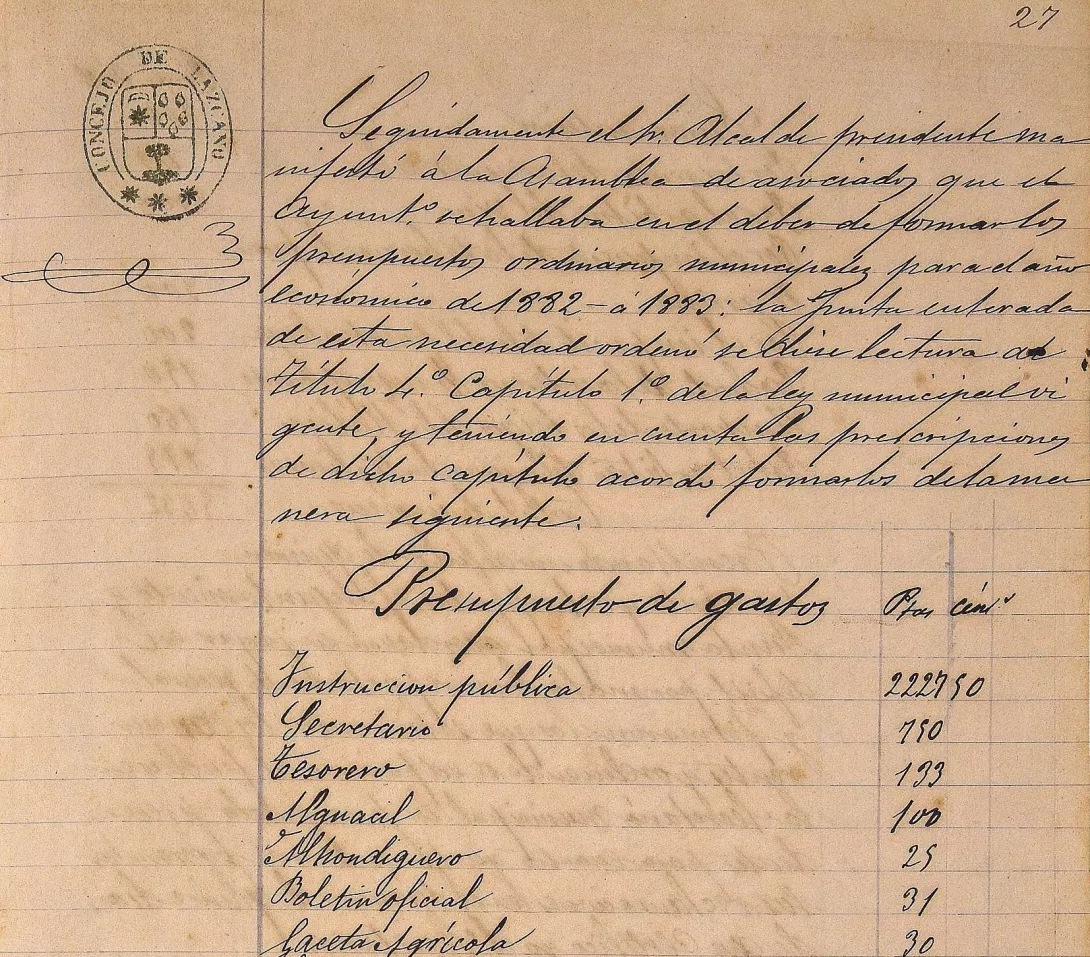 27
CONCEJO DE LAZCANO
Seguidamente el Sr. Alcalde presidente ma
nifestó á la Asamblea de asociados que el
Ayunt.º se hallaba en el deber de formar los
presupuestos ordinarios municipales para el año
económico de 1882 - á 1883: la Junta enterada
de esta necesidad ordenó se diese lectura al
Título 4.º Capítulo 1.º de la ley municipal vi
gente, y teniendo en cuenta las prescripciones
de dicho capítulo acordó formarlos de la ma
nera siguiente.
Presupuesto de gastos Ptas cénts
Instruccion pública 2227 50
Secretario 750
Tesorero 133
Alguacil 100
Alhondiguero 25
Boletin oficial 31
Gaceta Agrícola 30